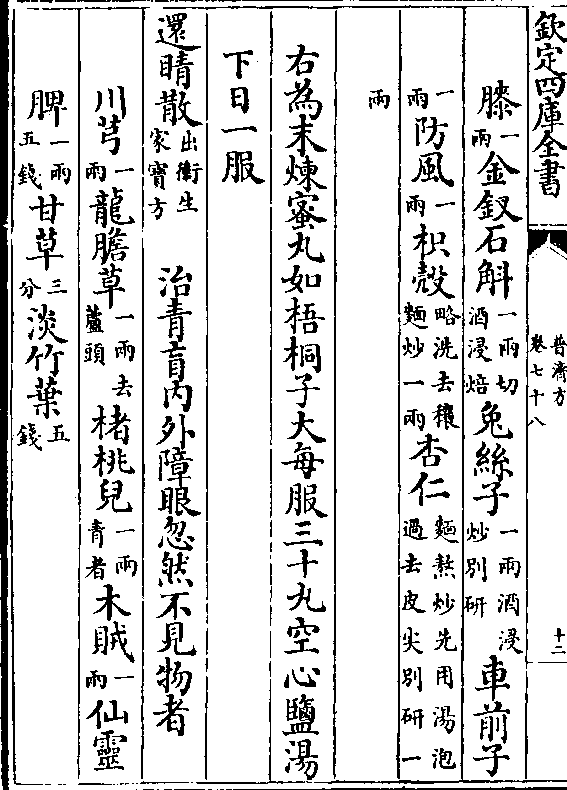 欽定四庫全書
普濟方
卷七十八
十二
膝一兩金釵石斛一兩切酒浸焙兔絲子一兩酒浸炒別研車前子
一兩防風一兩枳殻略洗去穰麵炒一兩杏仁麵熬炒先用湯泡過去皮尖別研一
兩
右為末煉蜜丸如梧桐子大每服三十丸空心鹽湯
下日一服
還睛散出衛生家寶方治青盲内外障眼忽然不見物者
川芎一兩龍膽草一兩去蘆頭楮桃兒一兩青者木賊一兩仙靈
脾一兩五錢甘草三分淡竹葉五錢